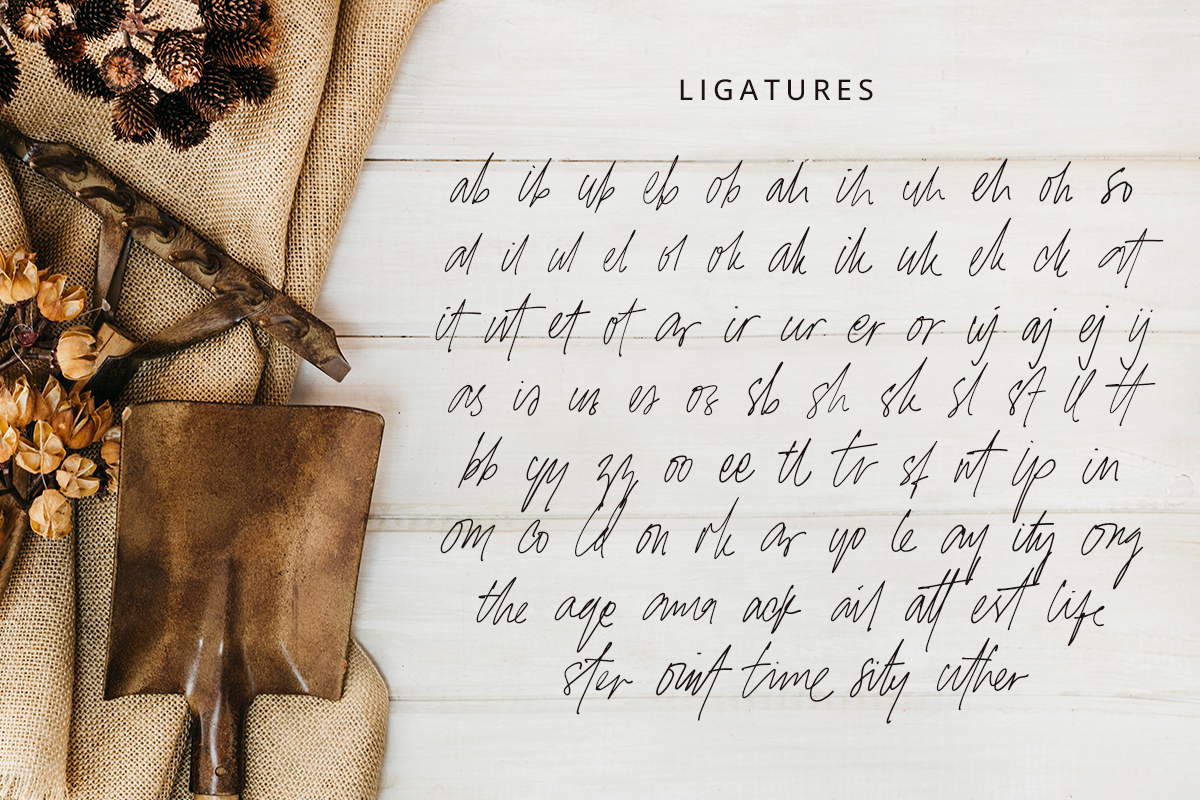 LIGATURES
ab ib ub eb ob ah ih uh eh oh so
al il ul el ol ok ak ik uk ek ck at
it ut et ot ar ir ur er or uj aj ej ij
as is us es os sb sh sk sl st ll tt
bb yy zz oo ee tl tr sf nt ip in
om co ld on rk ar yo le ay ity ong
the age ama ack ail all est life
ster oint time sity uther